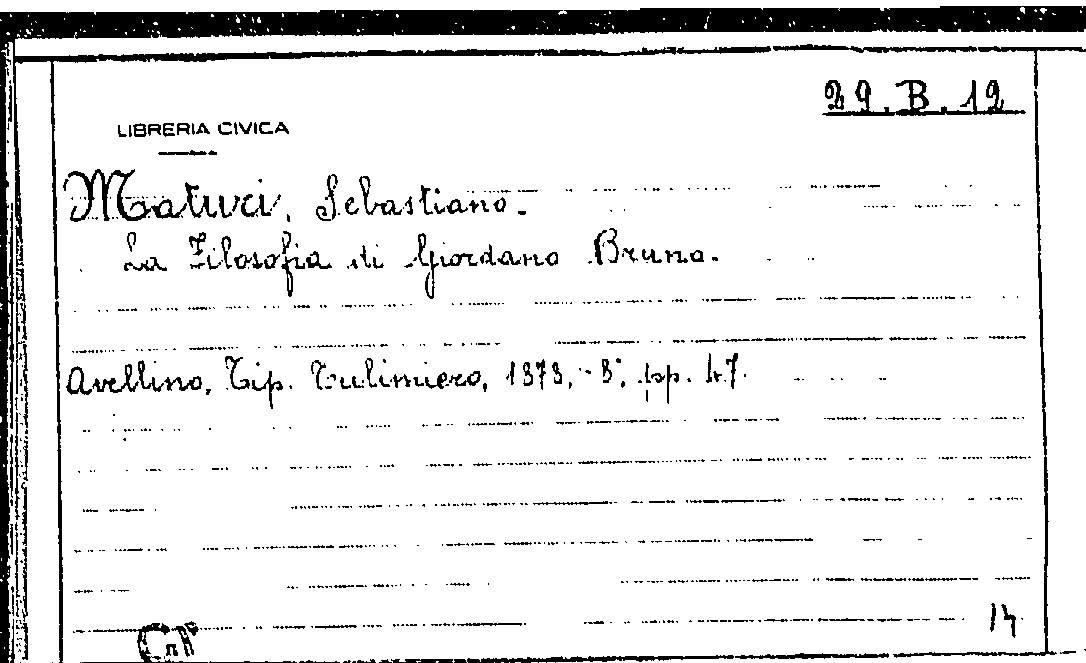 29.B.12
LIBRERIA CIVICA
Matuci, Sebastiano.
La Filosofia di Giordano Bruno.
Avellino, Tip. Tulimiero, 1873, - 8°, pp. 47.
14